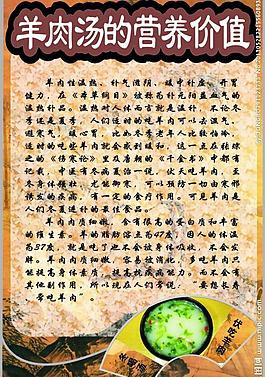 羊肉汤的营养价值
羊肉性温热、补气滋阴、暖中补虚、开胃
健力，在《本草纲目》被称为补元阳益血气的
温热补品。温热对人体而言就是温补。不论冬
季还是夏季，人们适时的吃羊肉可以去湿气、
避寒气、暖心胃，比如冬季老年人比较怕冷，
适时的吃些羊肉就会感到暖和，这一点在
《伤寒论》里及唐朝的《千金书》中都有
记载，中医有冬病夏治一说，伏天吃羊肉，
冬身体强壮，尤能御寒，可以预防一切由寒邪
诱发的疾病，有一定的食疗作用。可见羊肉是
人们冬夏进补的最佳食品。
羊肉肉质细嫩，含有很高的蛋白质和丰富
的维生素。羊的脂肪溶点为47度，因人的体温
为37度，就是吃了也不会被身体吸收，不会发
胖。羊肉肉质细嫩，容易被消化，多吃羊肉只
能提高身体素质，提高抗疾病能力。而不会有
其他副作用，所以现在人们常说，"要想长寿
常吃羊肉"。
伏吃羊肉